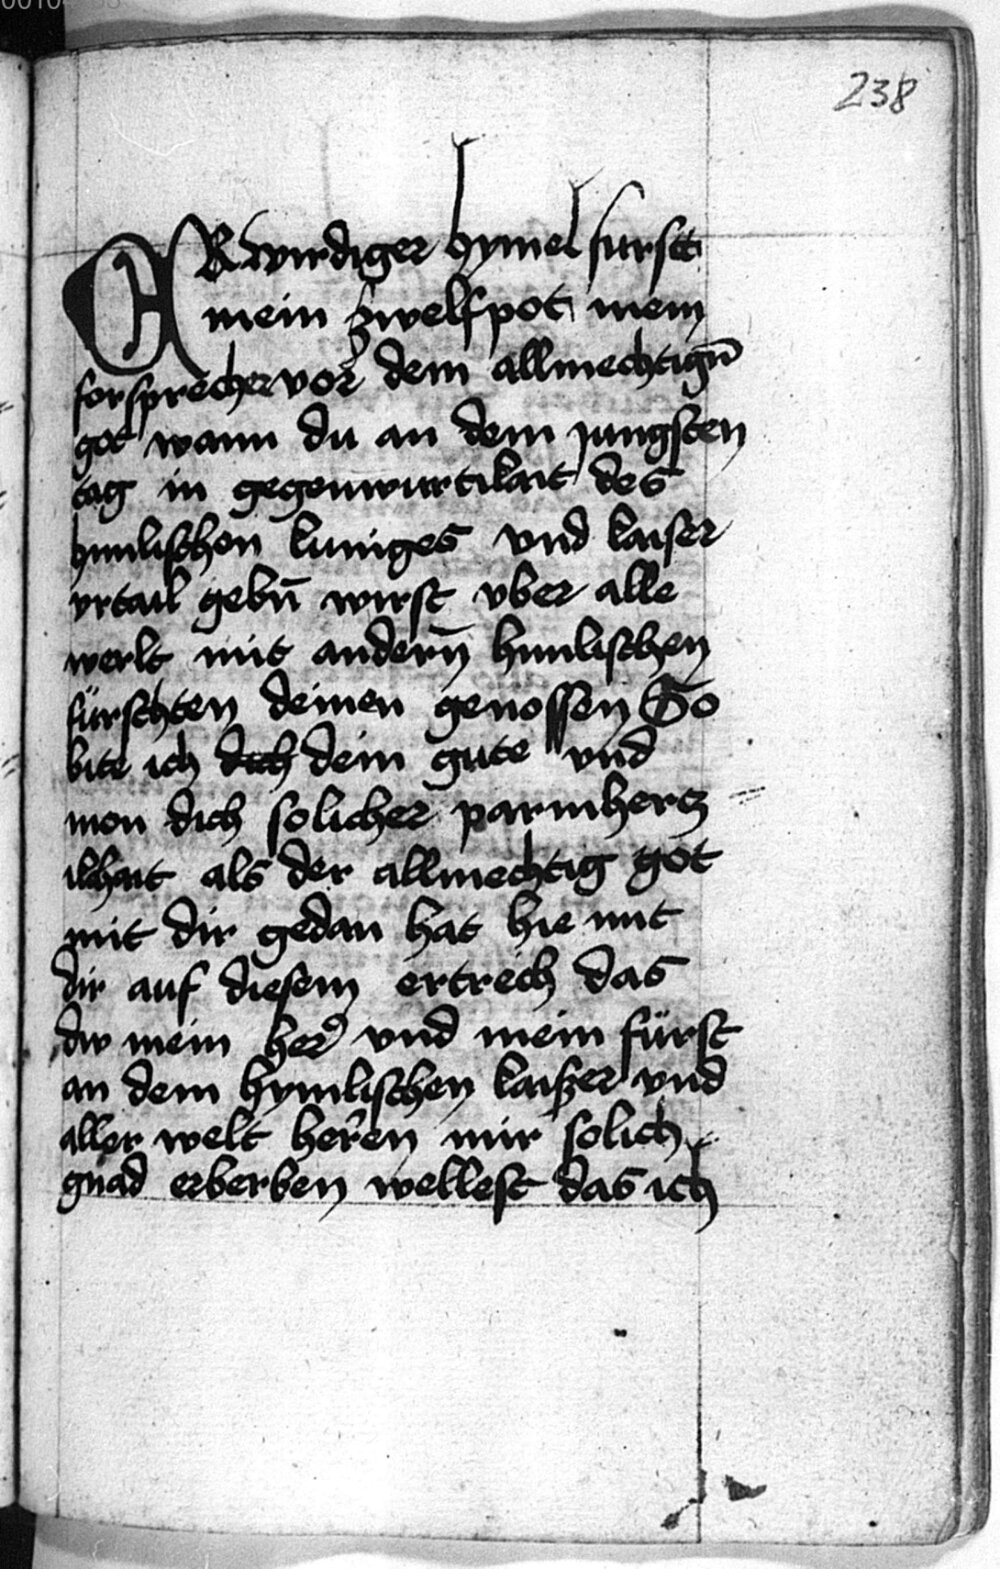 238
ERwirdiger hymel furst
mein zwelfpot mein
forsprecher vor dem allmechtigñ
got wann du an dem jungsten
tag in gegenwurtikait des
himlischen kuniges vnd kaiser
vrtail gebñ wirst vber alle
werlt mit anderñ himlischen
fürschten deinen genossen So
bite ich dich dein gute vnd
mon dich solicher parmhercz
ikhait als der allmechtig got
mit dir gedan hat hie mit
dir auf diesem ertrech das
dw mein her vnd mein fürst
an dem hymlischen kaiszer vnd
aller welt heren mir solich
gnad erberben wellest das ich